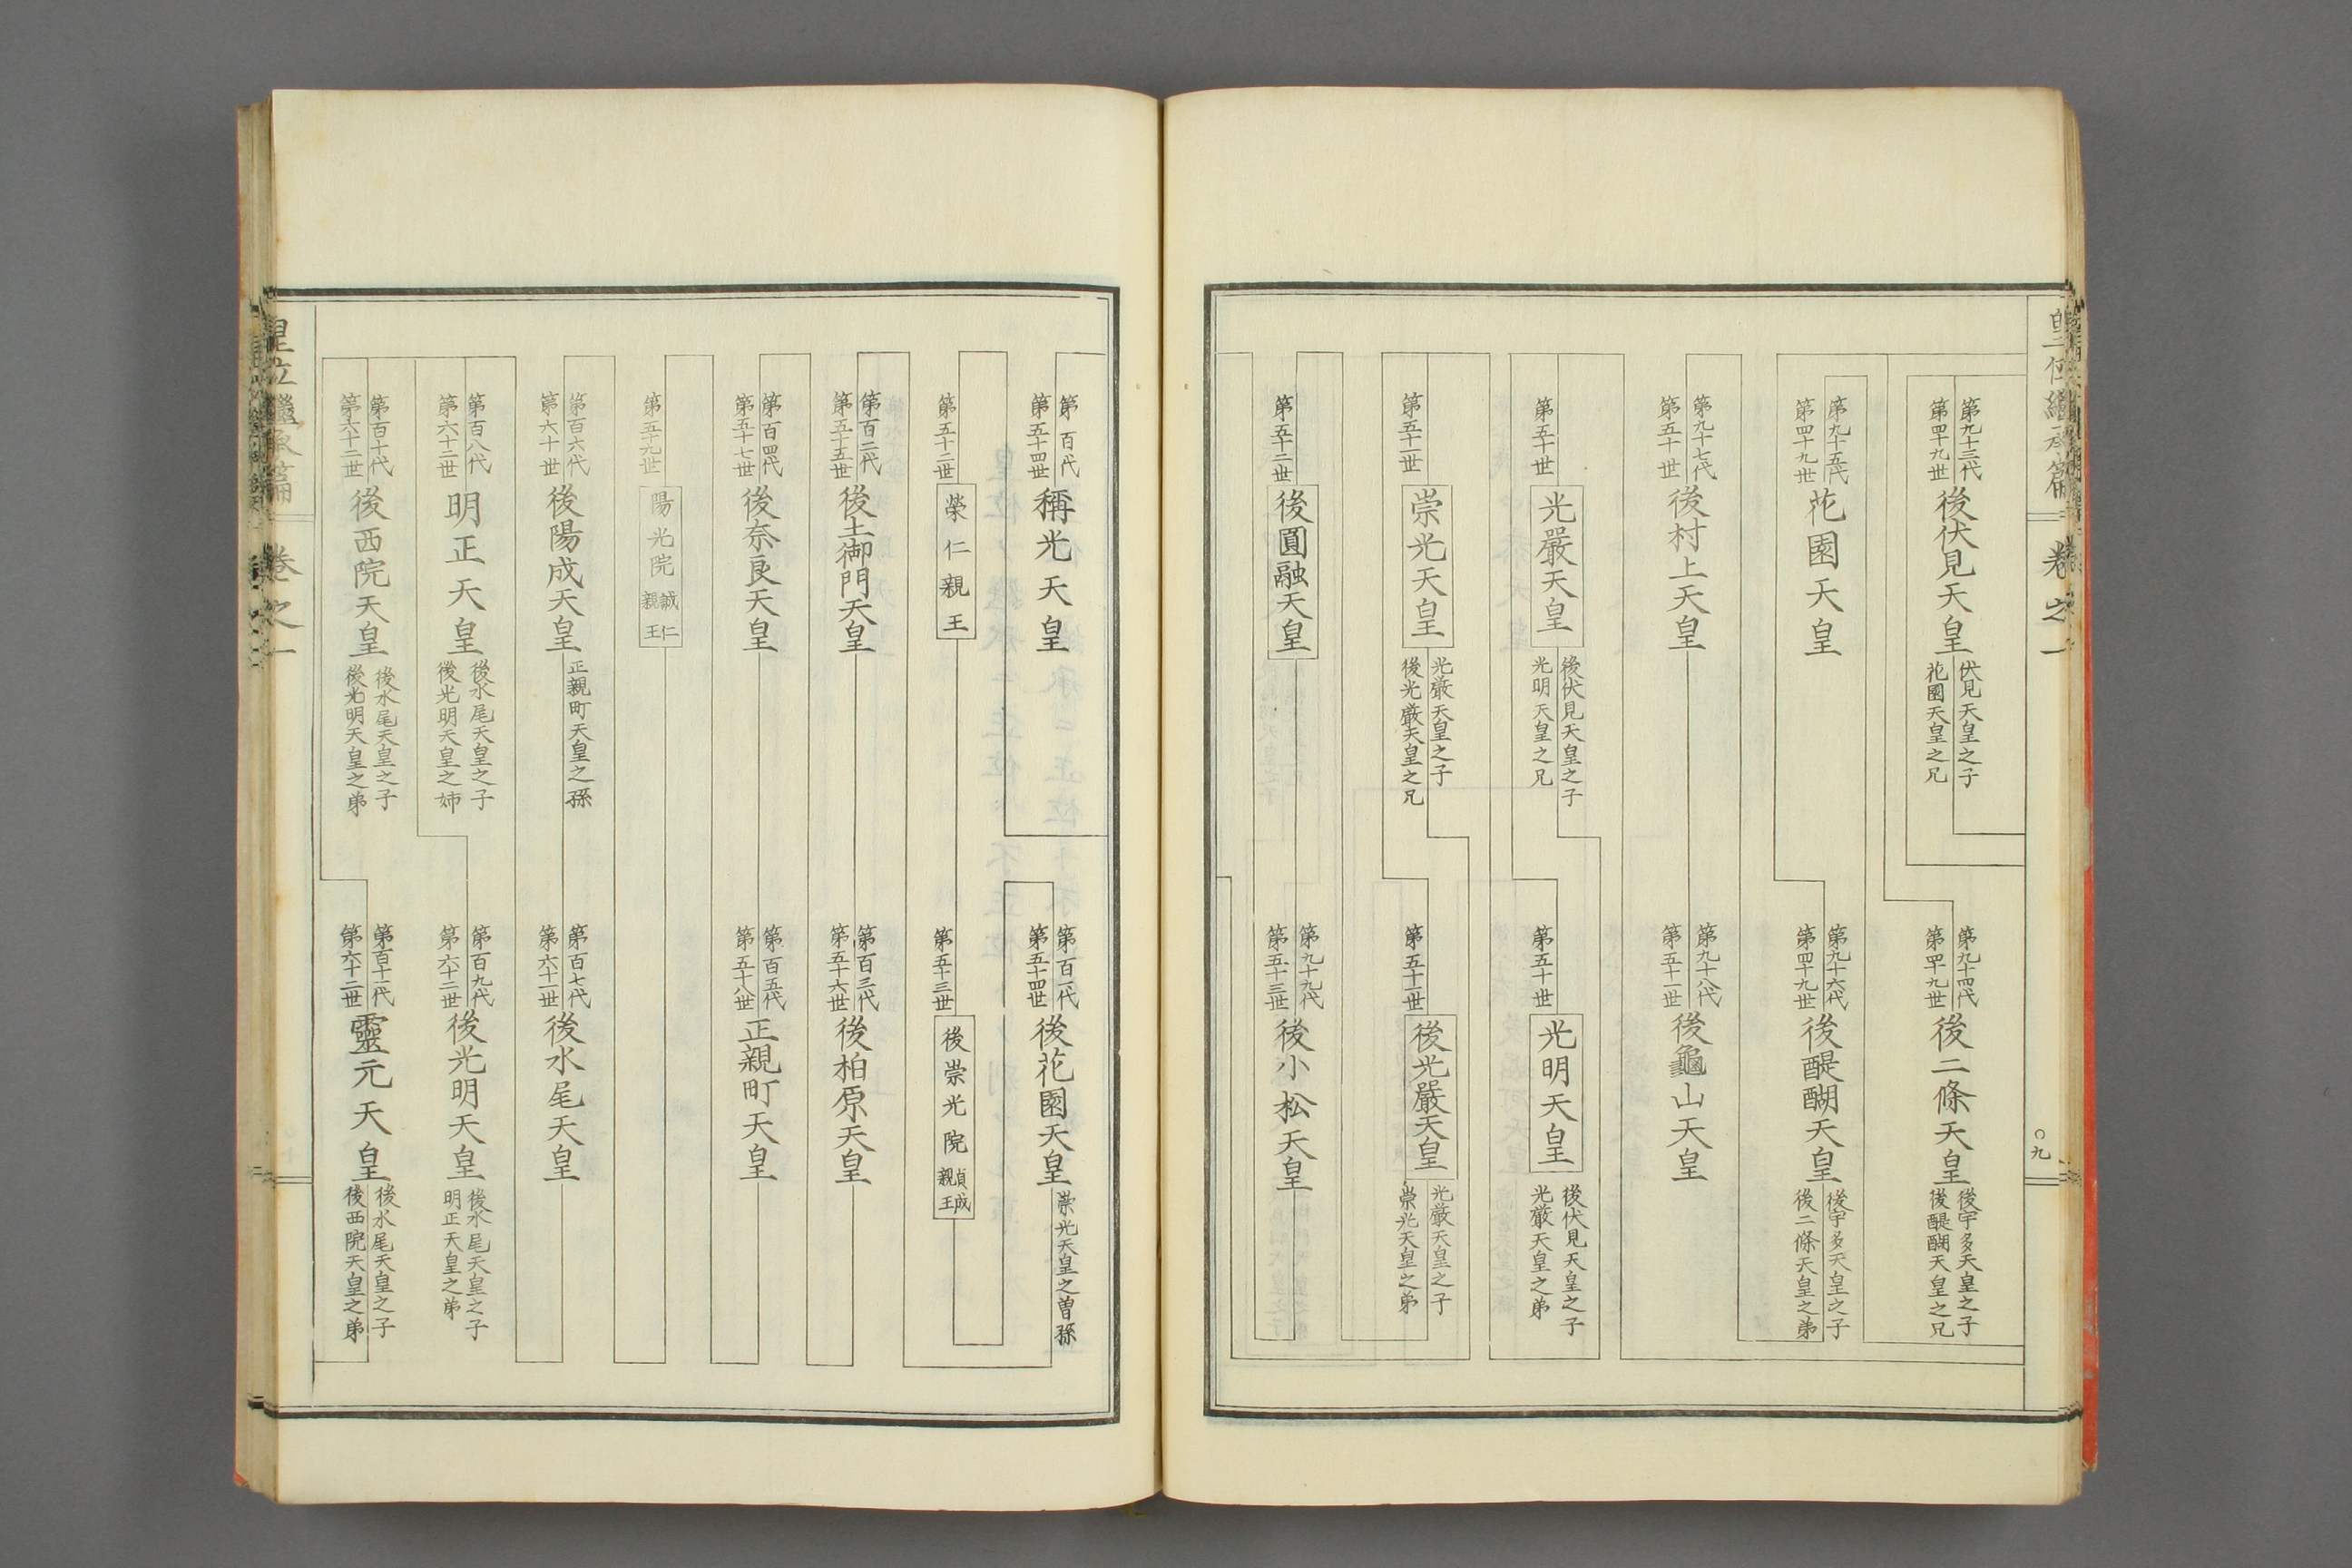 皇位繼承篇 卷之一 ○九
第九十三代
第四十九世
後伏見天皇
伏見天皇之子
花園天皇之兄
第九十四代
第四十九世
後二條天皇
後宇多天皇之子
後醍醐天皇之兄
第九十五代
第四十九世
花園天皇
第九十六代
第四十九世
後醍醐天皇
後宇多天皇之子
後二條天皇之弟
第九十七代
第五十世
後村上天皇
第九十八代
第五十一世
後龜山天皇
第五十世
光嚴天皇
後伏見天皇之子
光明天皇之兄
第五十世
光明天皇
後伏見天皇之子
光嚴天皇之弟
第五十一世
崇光天皇
光嚴天皇之子
後光嚴天皇之兄
第五十一世
後光嚴天皇
光嚴天皇之子
崇光天皇之弟
第五十二世
後圓融天皇
第九十九代
第五十三世
後小松天皇
第百代
第五十四世
稱光天皇
第百一代
第五十四世
後花園天皇
崇光天皇之曾孫
第五十二世
榮仁親王
第五十三世
後崇光院
貞成
親王
第百二代
第五十五世
後土御門天皇
第百三代
第五十六世
後柏原天皇
第百四代
第五十七世
後奈良天皇
第百五代
第五十八世
正親町天皇
第五十九世
陽光院
誠仁
親王
第百六代
第六十世
後陽成天皇
正親町天皇之孫
第百七代
第六十一世
後水尾天皇
第百八代
第六十二世
明正天皇
後水尾天皇之子
後光明天皇之姉
第百九代
第六十二世
後光明天皇
後水尾天皇之子
明正天皇之弟
第百十代
第六十二世
後西院天皇
後水尾天皇之子
後光明天皇之弟
第百十一代
第六十二世
靈元天皇
後水尾天皇之子
後西院天皇之弟
皇位繼承篇 卷之一